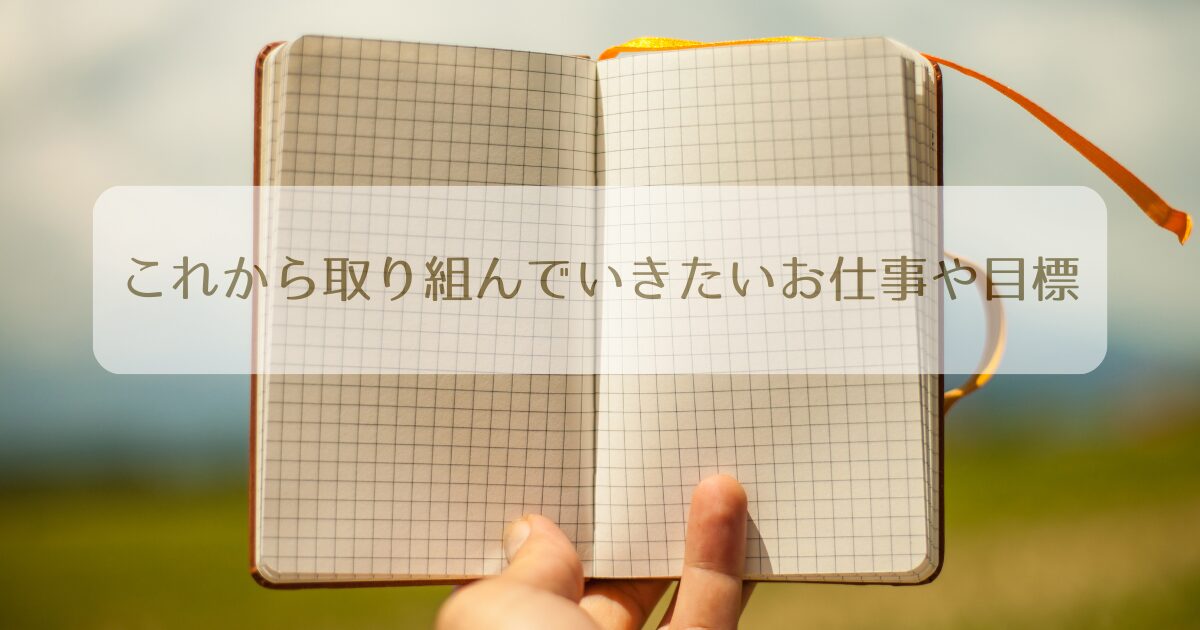 これから取り組んでいきたいお仕事や目標